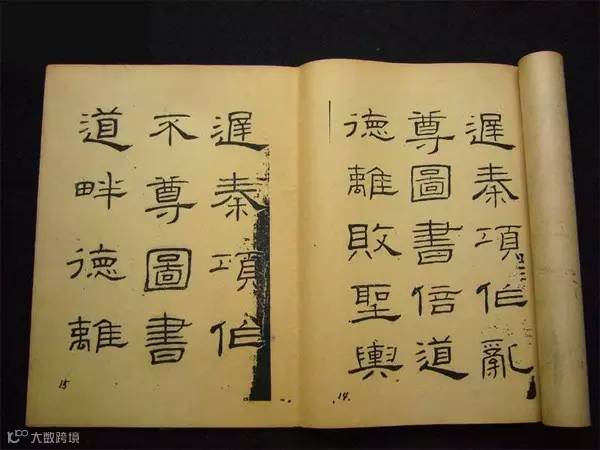 遲秦項作亂
尊圖書倍道
德離敗聖輿
14
遲秦項作
不尊圖書
道畔德離
15
大数跨境